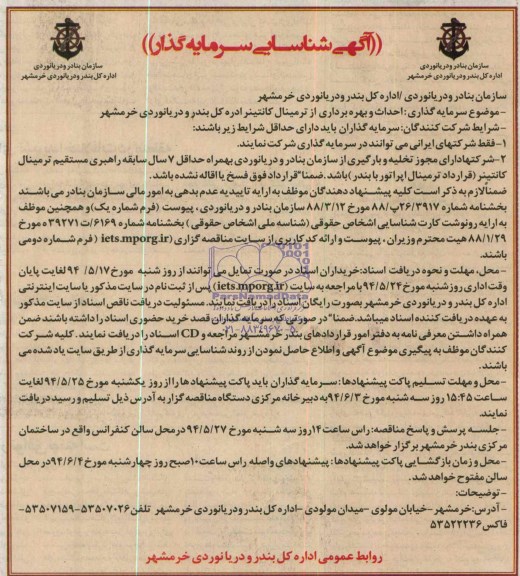 ((آگهی شناسایی سرمایه گذار))
سازمان بنادر و دریانوردی
اداره کل بندر و دریانوردی خرمشهر
سازمان بنادر و دریانوردی
اداره کل بندر و دریانوردی خرمشهر
سازمان بنادر و دریانوردی /اداره کل بندر ودریانوردی خرمشهر
-موضوع سرمایه گذاری :احداث و بهره برداری از ترمینال کانتینر ادره کل بندر و دریانوردی خرمشهر
-شرایط شرکت کنندگان: سرمایه گذاران باید دارای حداقل شرایط زیر باشند:
۱-فقط شرکتهای ایرانی می توانند در سرمایه گذاری شرکت نمایند.
۲-شرکتهادارای مجوز تخلیه و بارگیری از سازمان بنادر و دریانوردی بهمراه حداقل ۷سال سابقه راهبری مستقیم ترمینال
کانتینر (قرارداد ترمینال اپراتور با بندر) باشد. ضمنا"قرارداد فوق فسخ یا اقاله نشده باشد.
ضمنالازم به ذکر است کلیه پیشنهاد دهندگان موظف به ارایه تاییدیه عدم بدهی به امور مالی سازمان بنادر می باشند
بخشنامه شماره ۲۶/۳۹۱۷پ/۸۸ مورخ ۸۸/۳/۱۲ سازمان بنادر و دریانوردی، پیوست (فرم شماره یک)و همچنین موظف
به ارایه رونوشت کارت شناسایی اشخاص حقوقی (شناسه ملی اشخاص حقوقی) بخشنامه شماره ۶۱۶۹/ت ۳۹۲۷۱ه مورخ
۸۸/۱/۲۹ هیت محترم وزیران، پیوست و ارائه کد کاربری از سایت مناقصه گزاری (iets.mporg.ir) (فرم شماره دومی
باشند.
-محل، مهلت و نحوه دریافت اسناد:خریداران اسناد در صورت تمایل می توانند از روز شنبه مورخ ۹۴/۵/۱۷ لغایت پایان
وقت اداری روزشنبه مورخ۹۴/۵/۲۴ با مراجعه به سایت (iets.mporg.ir) پس از ثبت نام در سایت مذکور یا سایت اینترنتی
اداره کل بندر و دریانوردی خرمشهر بصورت رایگان اسناد را دریافت نمایند. مسئولیت دریافت ناقص اسناد از سایت مذکور
به عهده دریافت کننده اسناد میباشد.ضمنا" در صورتی که سرمایه گذاران قصد خرید حضوری اسناد را داشته باشند ضمن
همراه داشتن معرفی نامه به دفتر امور قراردادهای بندر خرمشهر مراجعه و CD اسناد را دریافت نمایند. کلیه شرکت
کنندگان موظف به پیگیری موضوع آگهی و اطلاع حاصل نمودن از روند شناسایی سرمایه گذاری از طریق سایت یاد شده می
باشند.
-محل و مهلت تسلیم پاکت پیشنهادها: سرمایه گذاران باید پاکت پیشنهادها را از روز یکشنبه مورخ ۹۴/۵/۲۵ لغایت
ساعت ۱۵:۴۵ روز سه شنبه مورخ ۹۴/۶/۳ به دبیر خانه مرکزی دستگاه مناقصه گزار به آدرس ذیل تسلیم و رسید دریافت
نمایند.
-جلسه پرسش و پاسخ مناقصه: راس ساعت ۱۴روز سه شنبه مورخ ۹۴/۵/۲۷ در محل سالن کنفرانس واقع در ساختمان
مرکزی بندر خرمشهر برگزار خواهد شد.
-محل و زمان بازگشایی پاکت پیشنهادها: پیشنهادهای واصله راس ساعت ۱۰صبح روز چهارشنبه مورخ ۹۴/۶/۴ در محل
سالن مفتوح خواهد شد.
-توضیحات:
-آدرس:خرمشهر -خیابان مولوی -میدان مولودی -اداره کل بندر و دریانوردی خرمشهر تلفن ۵۳۵۰۷۰۲۶-۵۳۵۰۷۱۵۹-
فاکس ۵۳۵۲۲۲۳۶
روابط عمومی اداره کل بندر و دریا نوردی خرمشهر
ParsNamadData
۰۲۱-۸۸۳۴۹۶۷۰-۵